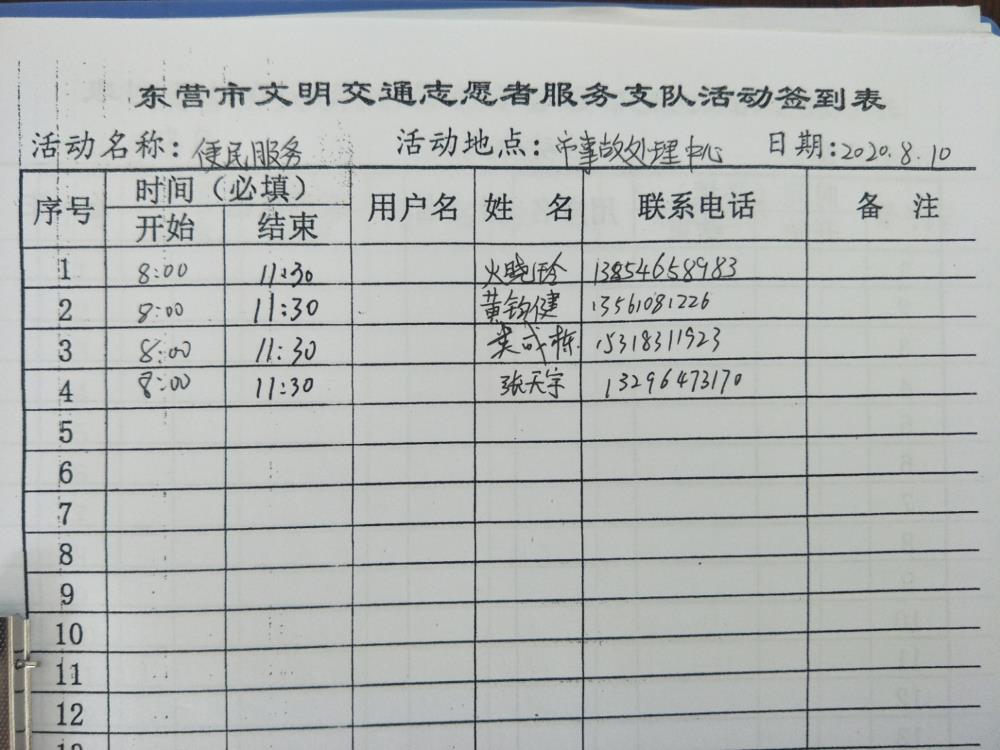 东营市文明交通志愿者服务支队活动签到表
活动名称：便民服务 活动地点：市事故处理中心 日期：2020.8.10
序号 时间（必填） 用户名 姓 名 联系电话 备 注
开始 结束
1 8:00 11:30 火晓玲 13854658983
2 8:00 11:30 黄钧健 13561081226
3 8:00 11:30 成栋 15318311923
4 8:00 11:30 张天宇 13296473170
5
6
7
8
9
10
11
12